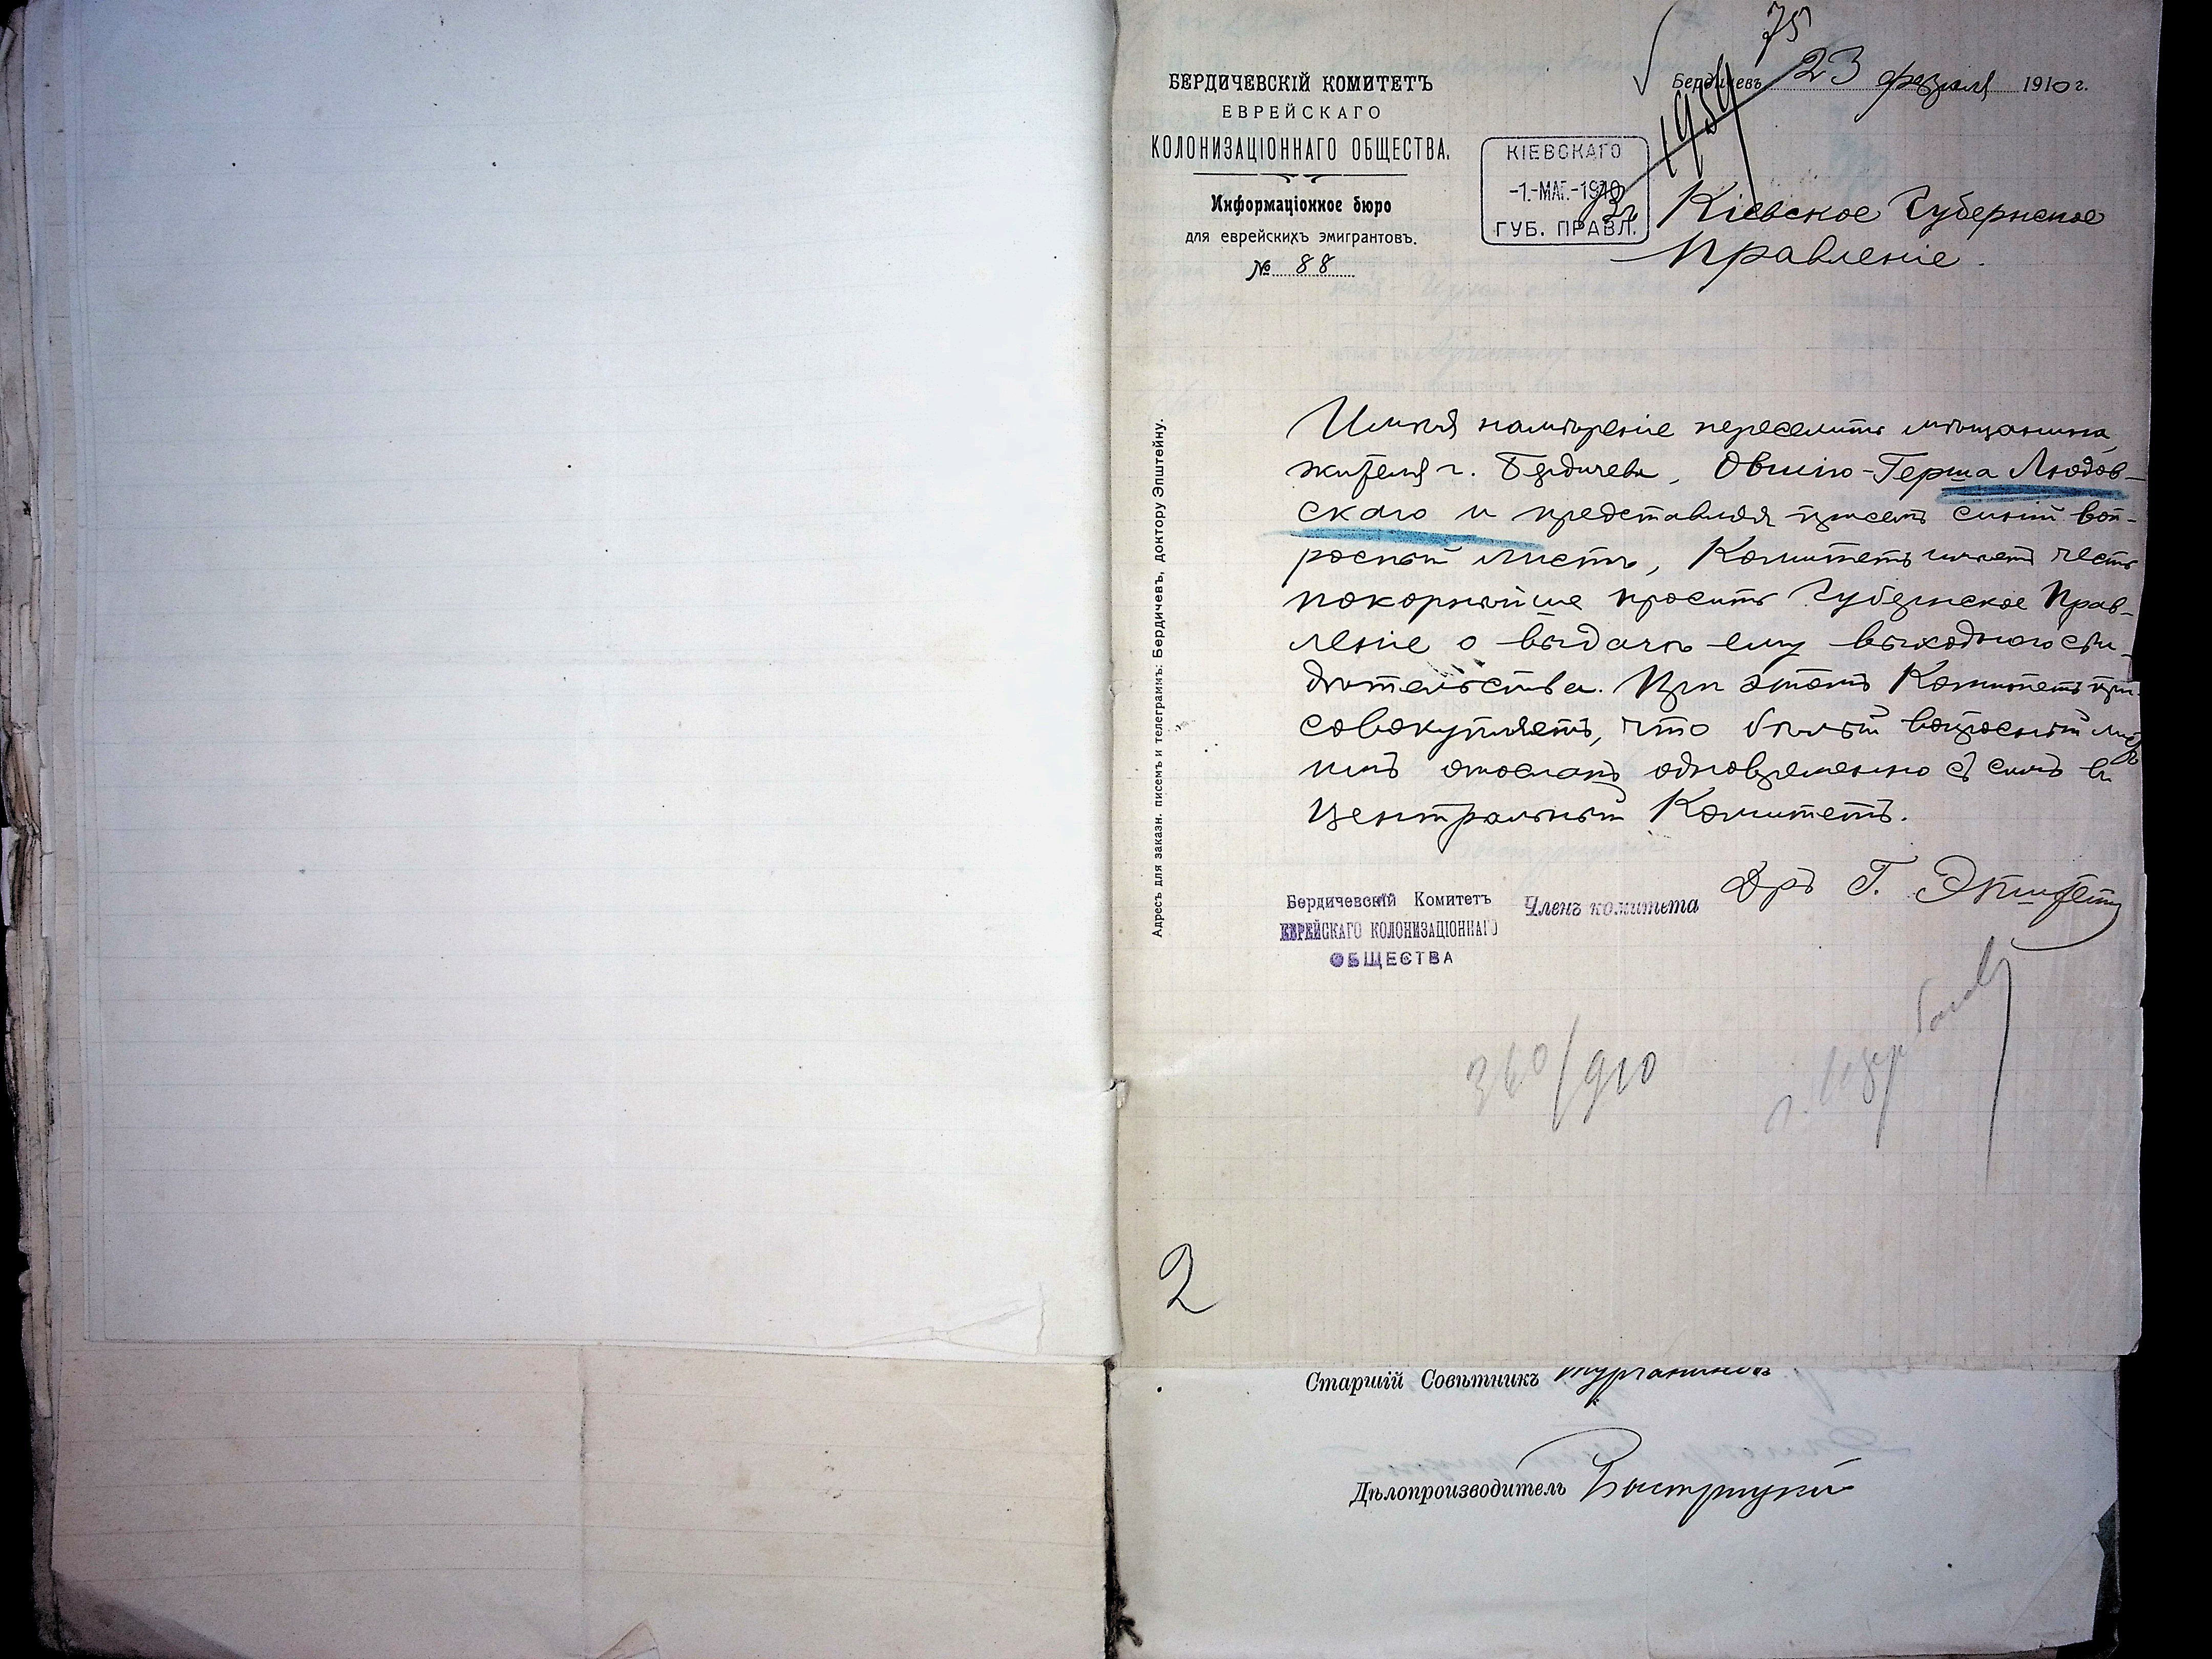 75
БЕРДИЧЕВСКІЙ КОМИТЕТЪ
ЕВРЕЙСКАГО
КОЛОНИЗАЦІОННАГО ОБЩЕСТВА.
Информаціонное бюро
для еврейскихъ эмигрантовъ.
№ 88
Бердичевъ 23 февраля 1910 г.
1959
КІЕВСКАГО
-1.-МАР.-1910
ГУБ. ПРАВЛ.
Въ Кіевское Губернское
Правленіе.
Адресъ для заказн. писемъ и телеграммъ: Бердичевъ, доктору Эпштейну.
Имѣя намѣреніе переселить мѣщанина,
жителя г. Бердичева, Овшію-Герша Людов-
скаго и представляя присемъ синій воп-
росный листъ, Комитетъ имѣетъ честь
покорнѣйше просить Губернское Прав-
леніе о выдачѣ ему выходного сви-
дѣтельства. При этомъ Комитетъ при-
совокупляетъ, что бѣлый вопросный листъ
имъ отосланъ одновременно съ симъ въ
Центральный Комитетъ.
Бердичевскій Комитетъ
ЕВРЕЙСКАГО КОЛОНИЗАЦІОННАГО
ОБЩЕСТВА
Членъ комитета Дръ Г. Эпштейнъ
360/910
2
Старшій Совѣтникъ
Дѣлопроизводитель Быстрицкій